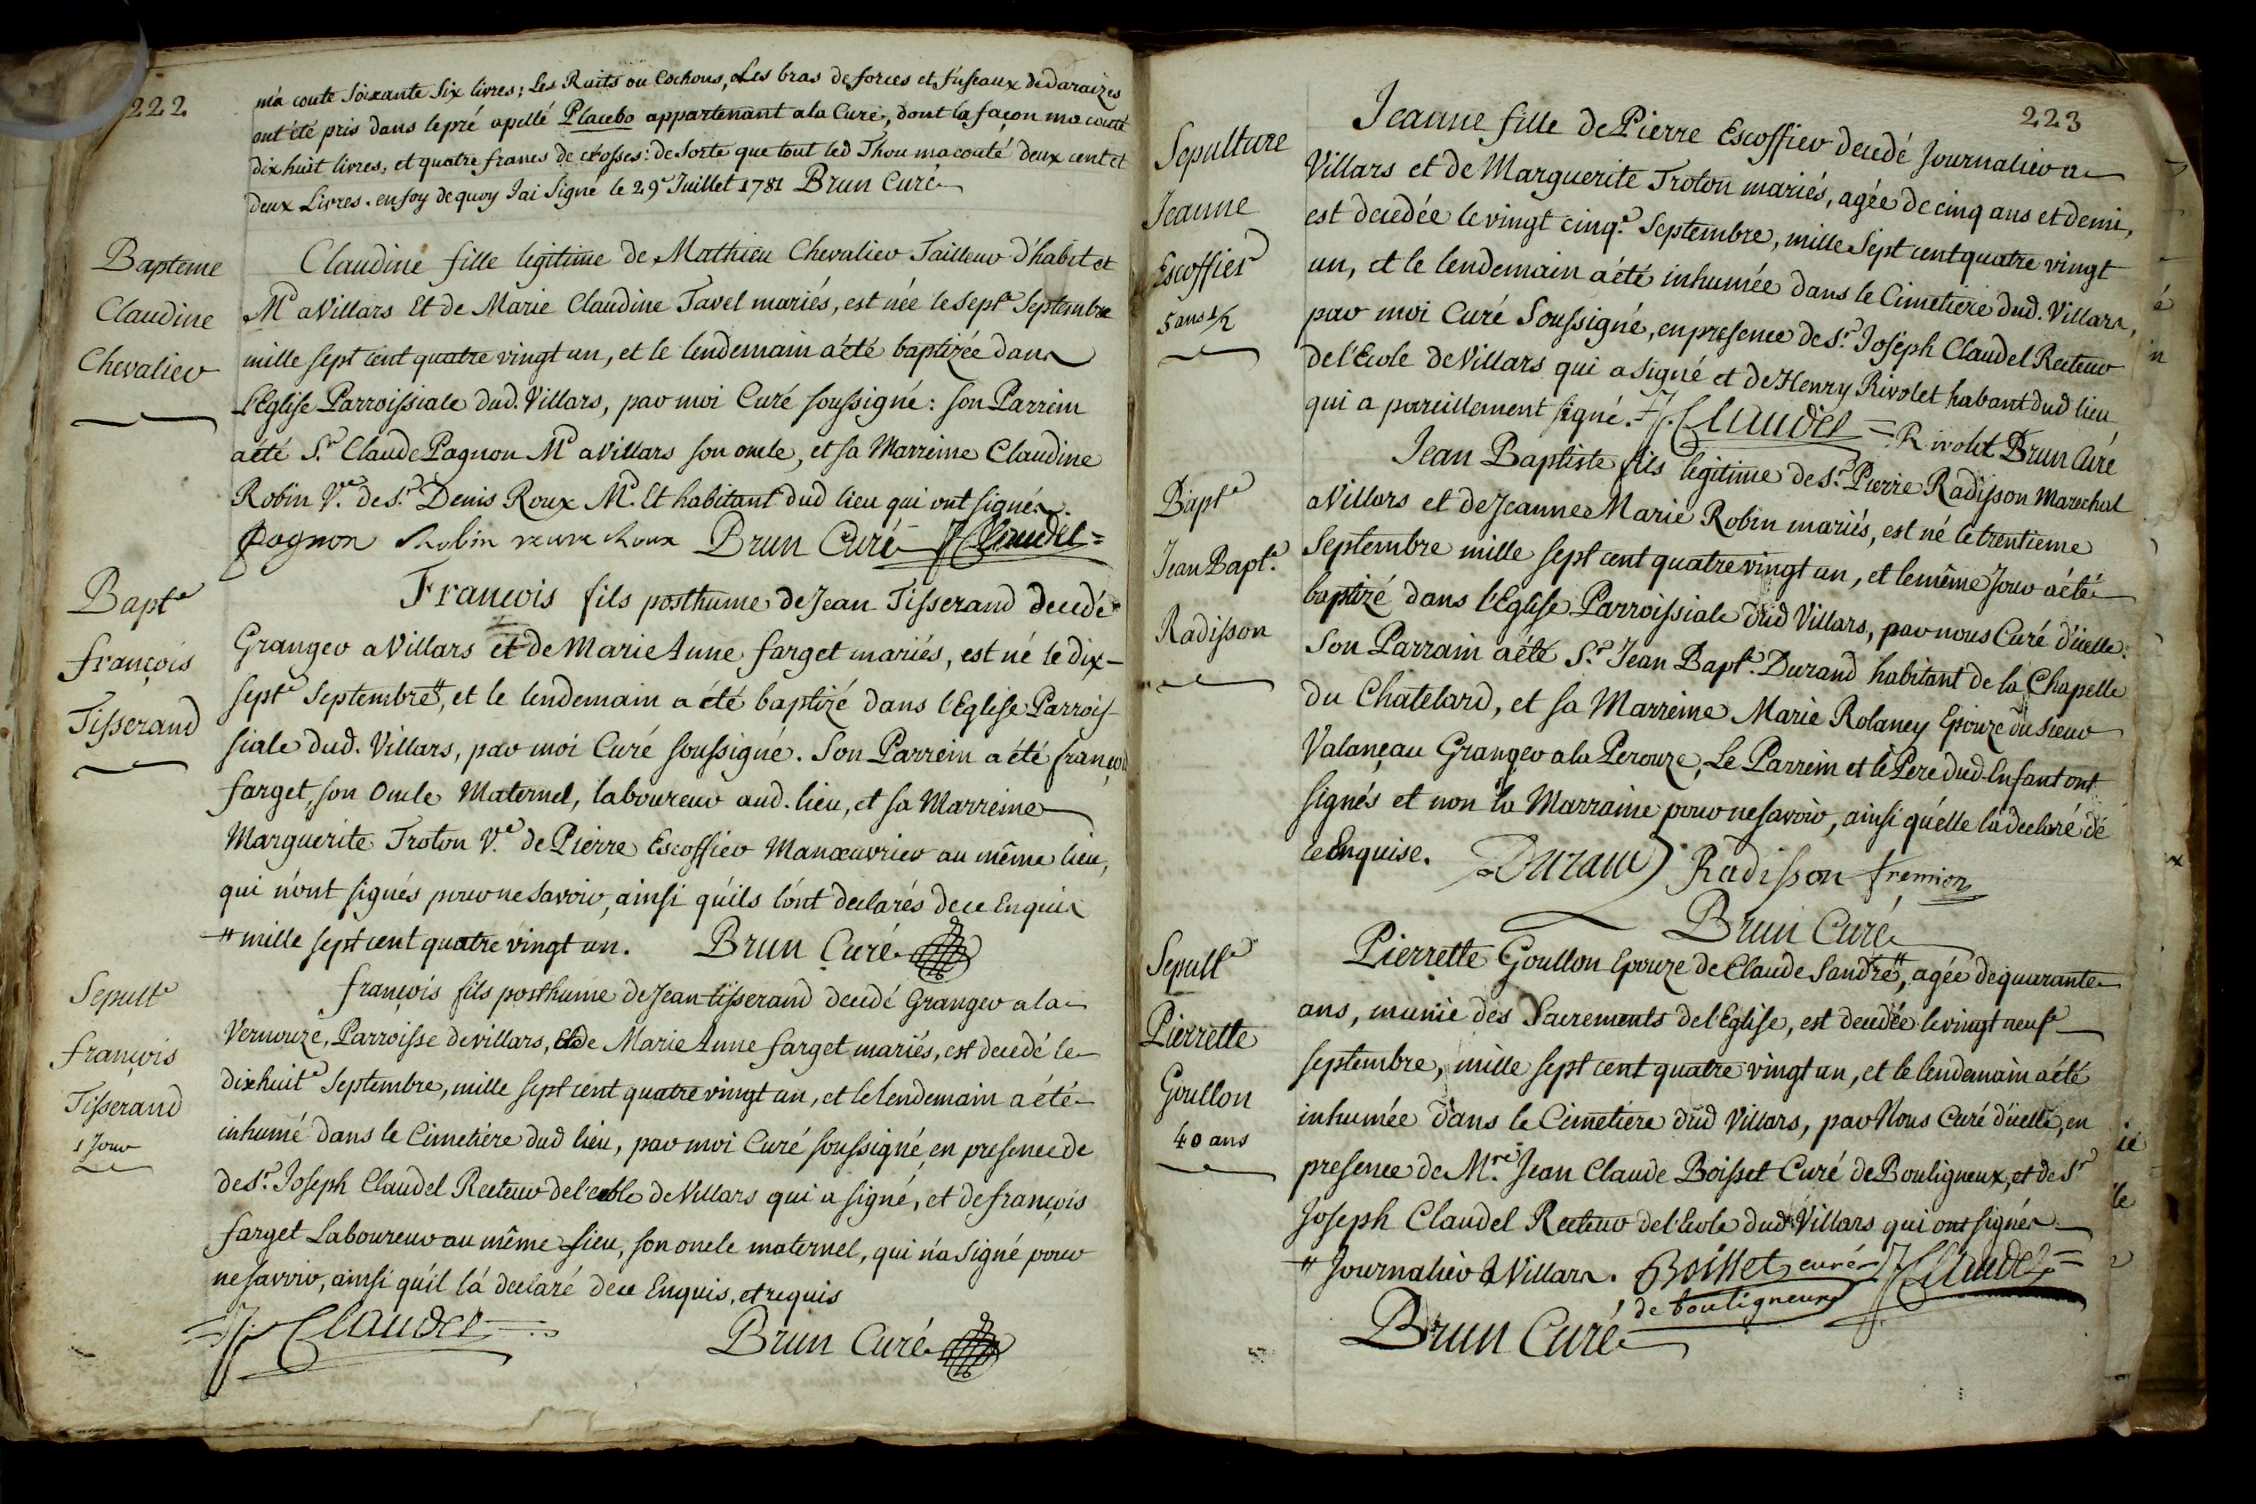 222
m'a couté soixante six livres; Les Ruits ou Cochons, Les bras de forces et fuseaux de daraizes
ont été pris dans le pré apellé Placebo appartenant a la Cure, dont la façon ma couté
dix huit livres, et quatre francs de crosses: de sorte que tout led Thou ma couté deux cent et
deux Livres. en foy de quoy Jai Signé le 29e Juillet 1781 Brun Curé
Bapteme
Claudine
Chevalier
Claudine fille legitime de Mathieu Chevalier Tailleur d'habit et
Md a Villars Et de Marie Claudine Tavel mariés, est née le septe Septembre
mille sept cent quatre vingt un, et le lendemain a été baptizée dans
l'Eglise Parroissiale dud. Villars, par moi Curé soussigné: son Parrein
a été Sr. Claude Pagnon Md a Villars son oncle, et sa Marreine Claudine
Robin Ve. de Sr. Denis Roux Md. Et habitant dud lieu qui ont signés.
Pagnon Robin veuve Roux Brun Curé J Claudel
Bapte
françois
Tisserand
François fils posthume de Jean Tisserand decedé
Granger a Villars et de Marie Anne farget mariés, est né le dix-
septe Septembre#, et le lendemain a été baptizé dans l'Eglise Parrois-
siale dud. Villars, par moi Curé soussigné. Son Parrein a été françois
farget, son Oncle Maternel, laboureur aud. lieu, et sa Marreine
Marguerite Troton Ve. de Pierre Escoffier Manœuvrier au même lieu,
qui n'ont signés pour ne savoir, ainsi qu'ils l'ont declarés de ce Enquis
# mille sept cent quatre vingt un. Brun Curé
Sepulte
françois
Tisserand
1 Jour
françois fils posthume de Jean tisserand decedé Granger a la
Vernouze, Parroisse de villars, et de Marie Anne farget mariés, est decedé le
dixhuite Septembre, mille sept cent quatre vingt un, et le lendemain a été
inhumé dans le Cimetiére dud lieu, par moi Curé soussigné, en presence de
de Sr. Joseph Claudel Recteur de l'ecole de Villars qui a signé, et de françois
farget Laboureur au même lieu, son oncle maternel, qui n'a signé pour
ne savoir, ainsi qu'il l'a declaré de ce Enquis, et requis
J Claudel
Brun Curé
223
Sepulture
Jeanne
Escoffier
5 ans 1/2
Jeanne fille de Pierre Escoffier decedé Journalier a
Villars et de Marguerite Troton mariés, agée de cinq ans et demi,
est decedée le vingt cinqe. Septembre, mille Sept cent quatre vingt
un, et le lendemain a été inhumée dans le Cimetiere dud. Villars,
par moi Curé Soussigné, en presence de Sr. Joseph Claudel Recteur
de l'Ecole de Villars qui a signé et de Henry Rivolet habant dud lieu
qui a pareillement signé. J. Claudel Rivolet Brun Curé
Bapte
Jean Bapte.
Radisson
Jean Baptiste fils legitime de Sr. Pierre Radisson Marechal
a Villars et de Jeanne Marie Robin mariés, est né le trentieme
Septembre mille sept cent quatre vingt un, et le même Jour a été
baptizé dans l'Eglise Parroissiale dud Villars, par nous Curé d'iïelle:
Son Parrain a été Sr. Jean Bapte. Durand habitant de la Chapelle
du Chatelard, et sa Marreine Marie Rolancy Epouze du sieur
Valançau Granger a la Perouze, Le Parrein et le Pere dud. Enfant ont
signés et non la Marraine pour ne savoir, ainsi qu'elle l'a declaré de
ce Enquise. Durand Radisson fremion
Brun Curé
Sepulte
Pierrette
Goullon
40 ans
Pierrette Goullon Epouze de Claude Sandré#, agée de quarante
ans, munie des Sacrements de l'Eglise, est decedée le vingt neuf
septembre, mille sept cent quatre vingt un, et le lendemain a été
inhumée dans le Cimetiére dud Villars, par Nous Curé d'iïelle, en
presence de Mre. Jean Claude Boisset Curé de Bouligneux, et de Sr
Joseph Claudel Recteur de l'Ecole dud. Villars qui ont signés
# Journalier a Villars. Boisset curé J Claudel
de bouligneux
Brun Curé